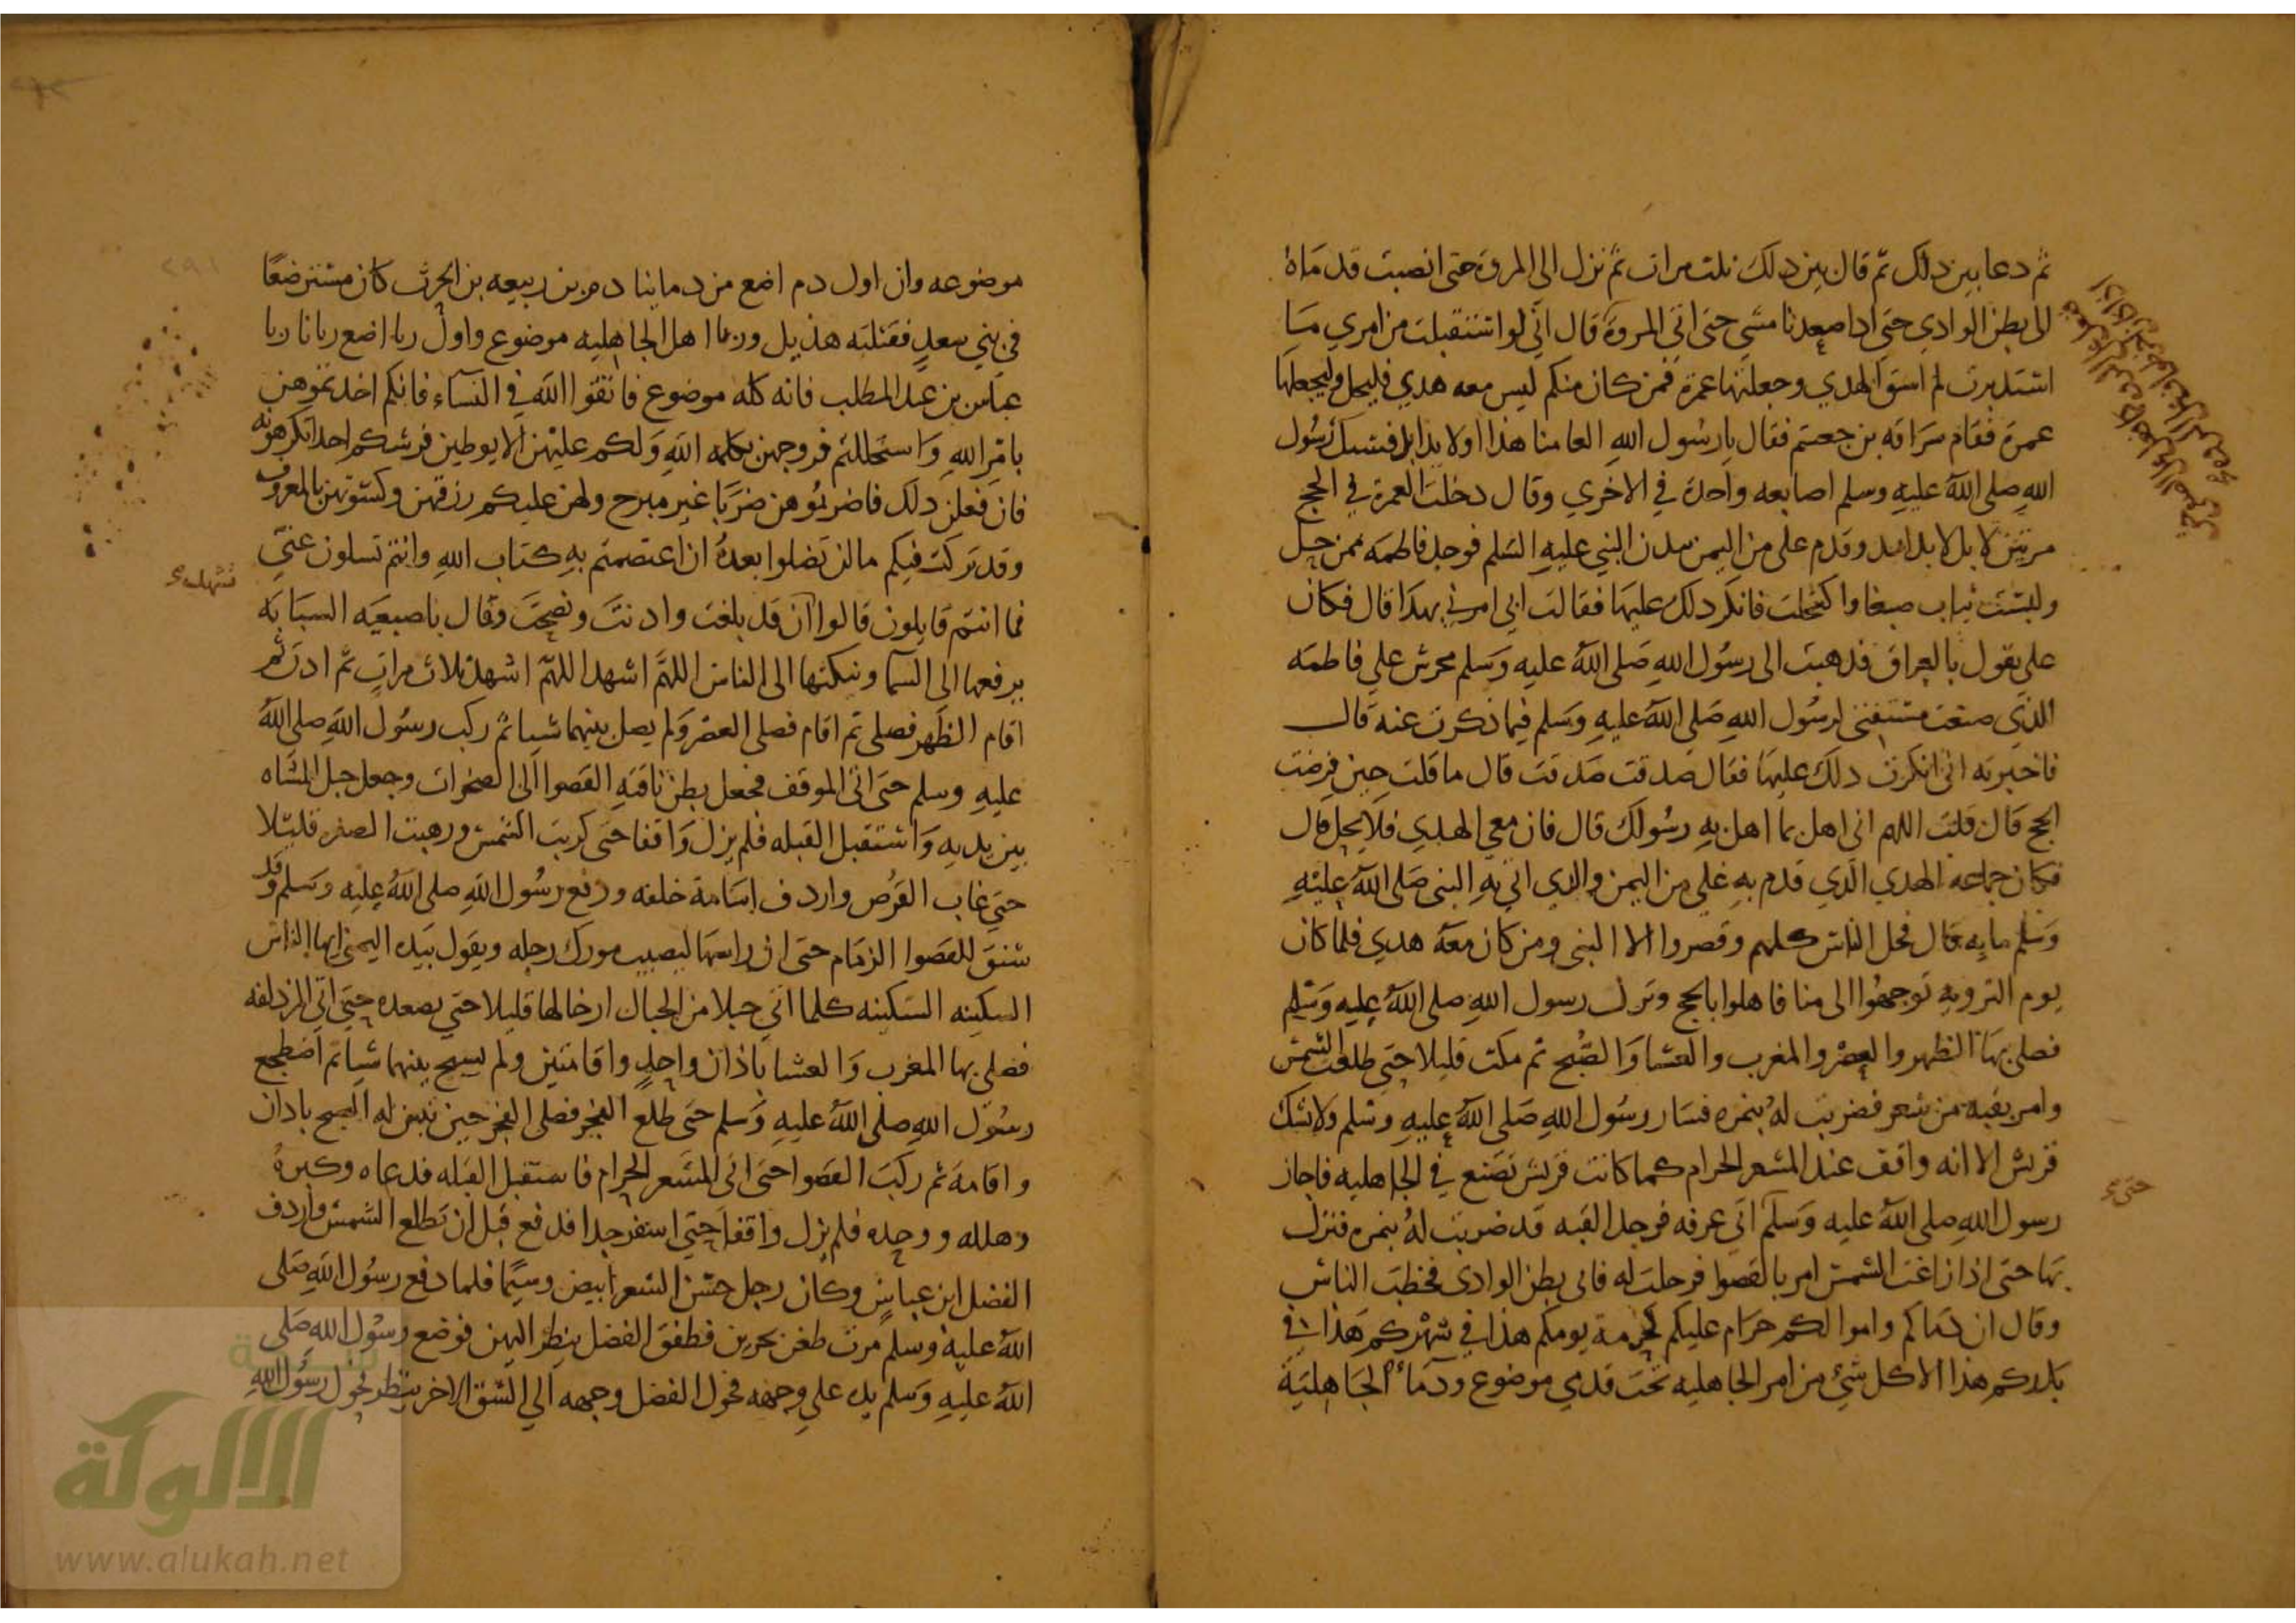 ثم دعا بين ذلك ثم قال بين ذلك ثلث مرات ثم نزل الى المروة حتى انصبت قدماه
الى بطن الوادي حتى اذا صعدنا مشي حتى اتى المروة قال اني لو استقبلت من امري ما
استدبرت لم اسق الهدي وجعلتها عمرة فمن كان منكم ليس معه هدي فليحل وليجعلها
عمرة فقام سراقه بن جعشم فقال يا رسول الله العامنا هذا او لا بد ابد فشبك رسول
الله صلى الله عليه وسلم اصابعه واحدة في الاخري وقال دخلت العمرة في الحج
مرتين لا بل لا بد ابد وقدم على من اليمن ببدن النبي عليه السلم فوجد فاطمه ممن حل
ولبست ثياب صبغا واكتحلت فانكر ذلك عليها فقالت ابي امرني بهذا قال فكان
على يقول بالعراق فذهبت الى رسول الله صلى الله عليه وسلم محرش على فاطمه
الذي صنعت مستفتى لرسول الله صلى الله عليه وسلم فيما ذكرت عنه قال
فاخبرته انى انكرت ذلك عليها فقال صدقت صدقت قال ما قلت حين فرضت
الحج قال قلت اللهم انى اهل بما اهل به رسولك قال فان معي الهدي فلا يحل قال
فكان جماعه الهدي الذي قدم به علي من اليمن والذي اتي به النبي صلى الله عليه
وسلم مايه قال فحل الناس كلهم وقصروا الا النبى ومن كان معه هدي فلما كان
يوم الترويه توجهوا الى منا فاهلوا بالحج ونزل رسول الله صلى الله عليه وسلم
فصلى بها الظهر والعصر والمغرب والعشا والصبح ثم مكث قليلا حتى طلعت الشمس
وامر بقبه من شعر فضربت له بنمره فسار رسول الله صلى الله عليه وسلم ولا تشك
قريش الا انه واقف عند المشعر الحرام كما كانت قريش تصنع في الجاهليه فاجاز
رسول الله صلى الله عليه وسلم اتى عرفه فوجد القبه قد ضربت له بنمره فنزل
حتى
بها حتى اذا زاغت الشمس امر بالقصوا فرحلت له فاتى بطن الوادى فخطب الناس
وقال ان دماكم واموالكم حرام عليكم كحرمة يومكم هذا في شهركم هذا في
بلدكم هذا الا كل شئ من امر الجاهليه تحت قدمي موضوع ودماء الجاهلية
موضوعه وان اول دم اضع من دماينا دم بن ربيعه بن الحرث كان مسترضعا
في بني سعد فقتلته هذيل وربا اهل الجاهليه موضوع واول ربا اضع ربانا ربا
عباس بن عبد المطلب فانه كله موضوع فاتقوا الله في النساء فانكم اخذتموهن
بامر الله واستحللتم فروجهن بكلمه الله ولكم عليهن الا يوطين فرشكم احدا تكرهونه
فان فعلن ذلك فاضربوهن ضربا غير مبرح ولهن عليكم رزقهن وكسوتهن بالمعروف
وقد تركت فيكم ما لن تضلوا بعده ان اعتصمتم به كتاب الله وانتم تسلون عني
فما انتم قايلون قالوا ان قد بلغت واديت ونصحت وقال باصبعيه السبابه
نشهد
يرفعها الى السما وينكتها الى الناس اللهم اشهد اللهم اشهد ثلاث مرات ثم اذن ثم
اقام الظهر فصلى ثم اقام فصلى العصر ولم يصل بينهما شيا ثم ركب رسول الله صلى الله
عليه وسلم حتى اتى الموقف فجعل بطن ناقته القصوا الى الصخرات وجعل حبل المشاه
بين يديه واستقبل القبله فلم يزل واقفا حتى كربت الشمس وذهبت الصفره قليلا
حتي غاب القرص واردف اسامة خلفه ودفع رسول الله صلى الله عليه وسلم وقد
شنق للقصوا الزمام حتى ان راسها ليصيب مورك رجله ويقول بيده اليمنى ايها الناس
السكينه السكينه كلما اتي حبلا من الحبال ارخا لها قليلا حتى تصعد حتى اتى المزدلفه
فصلى بها المغرب والعشا باذان واحد واقامتين ولم يسبح بينهما شيا ثم اضطجع
رسول الله صلى الله عليه وسلم حتى طلع الفجر فصلى الفجر حين تبين له الصبح باذان
واقامة ثم ركب القصوا حتى اتى المشعر الحرام فاستقبل القبله فدعاه وكبره
وهلله ووحده فلم يزل واقفا حتى اسفر جدا فدفع قبل ان تطلع الشمس واردف
الفضل ابن عباس وكان رجل حسن الشعر ابيض وسيما فلما دفع رسول الله صلى
الله عليه وسلم مرت ظعن يجرين فطفق الفضل ينظر اليهن فوضع رسول الله صلى
الله عليه وسلم يده على وجهه فحول الفضل وجهه الى الشق الاخر ينظر فحول رسول الله
الألوكة
www.alukah.net